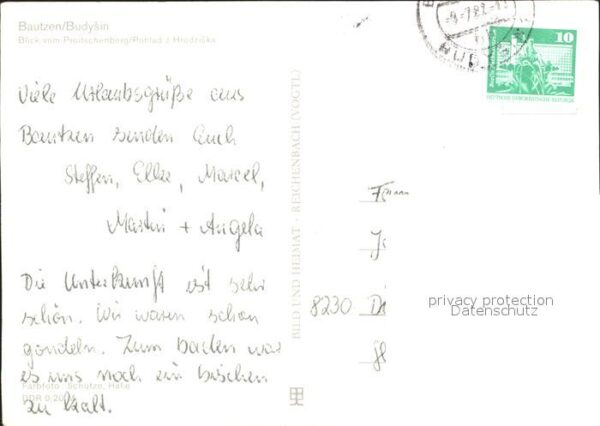 Bautzen/Budyšin
Blick vom Proitschenberg/Pohlad z Hrodziška
Viele Urlaubsgrüße aus
Bautzen senden Euch
Steffen, Elke, Marcel,
Martin + Angela
Die Unterkunft ist sehr
schön. Wir waren schon
gondeln. Zum baden war
es uns noch ein bischen
zu kalt.
Farbfoto: Schütze, Halle
DDR 0,20
BILD UND HEIMAT · REICHENBACH (VOGTL)
10
DEUTSCHE DEMOKRATISCHE REPUBLIK
8230
privacy protection
Datenschutz